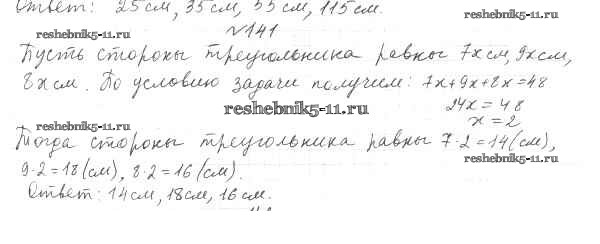 Ответ: 25см, 35см, 55см, 115см.
reshebnik5-11.ru
№141
reshebnik5-11.ru
Пусть стороны треугольника равны 7x см, 9x см,
8x см. По условию задачи получим: 7x+9x+8x=48
24x=48
reshebnik5-11.ru
x=2
reshebnik5-11.ru
Тогда стороны треугольника равны 7·2=14(см),
reshebnik5-11.ru
9·2=18(см), 8·2=16(см).
Ответ: 14см, 18см, 16см.